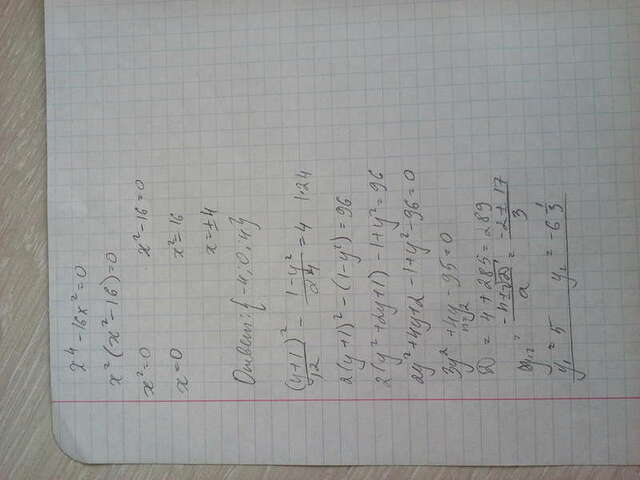 x⁴ - 16x² = 0
x² (x² - 16) = 0
x² = 0 x² - 16 = 0
x = 0 x² = 16
x = ±4
Ответ: {-4; 0; 4}
(y+1)²/12 - (1-y²)/24 = 4 |·24
2(y+1)² - (1-y²) = 96
2(y² + 2y + 1) - 1 + y² = 96
2y² + 4y + 2 - 1 + y² - 96 = 0
3y² + 4y - 95 = 0
n = 2
D = 4 + 285 = 289
y₁,₂ = (-n ± √D)/a = (-2 ± 17)/3
y₁ = 5 y₂ = -6 1/3